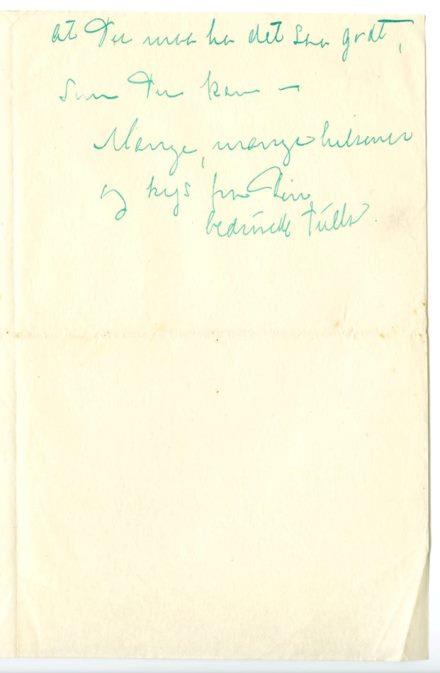 at Du maa ha det saa godt,
som Du kan —
Mange, mange hilsener
og kys fra Din
bedrøvede Tulla.